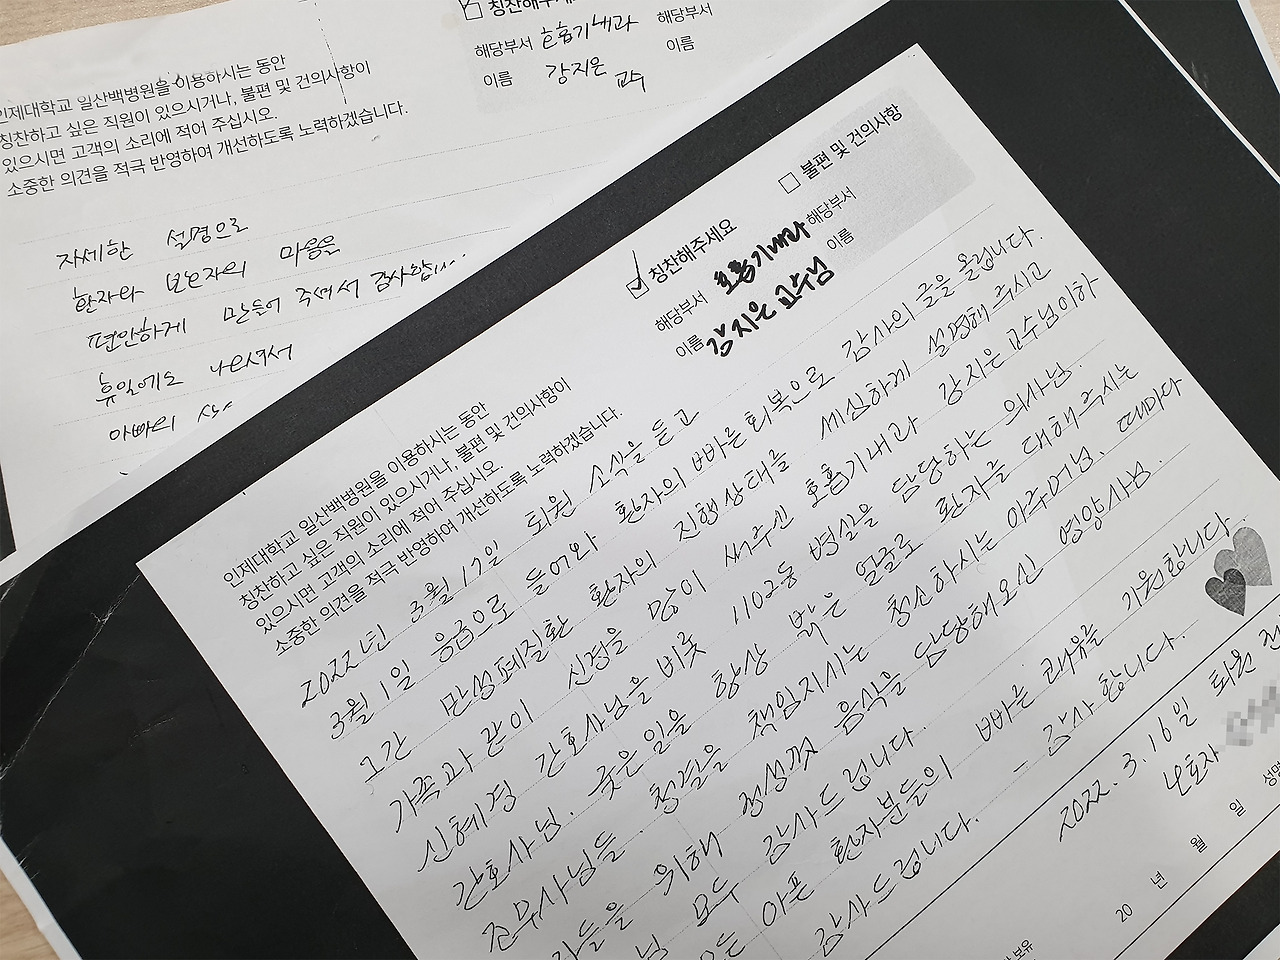 칭찬해주세요
해당부서 호흡기내과 해당부서
이름 강지은 교수 이름
인제대학교 일산백병원을 이용하시는 동안
칭찬하고 싶은 직원이 있으시거나, 불편 및 건의사항이
있으시면 고객의 소리에 적어 주십시오.
소중한 의견을 적극 반영하여 개선하도록 노력하겠습니다.
자세한 설명으로
환자와 보호자의 마음을
편안하게 만들어 주셔서 감사합니
휴일에도 나오셔서
아빠의
칭찬해주세요 불편 및 건의사항
해당부서 호흡기내과 해당부서
이름 강지은 교수님 이름
인제대학교 일산백병원을 이용하시는 동안
칭찬하고 싶은 직원이 있으시거나, 불편 및 건의사항이
있으시면 고객의 소리에 적어 주십시오.
소중한 의견을 적극 반영하여 개선하도록 노력하겠습니다.
2022년 3월 17일 퇴원 소식을 듣고
3월 1일 응급으로 들어와 환자의 빠른 회복으로 감사의 글을 올립니다.
그간 만성폐질환 환자의 진행상태를 세심하게 설명해 주시고
가족과 같이 신경을 많이 써주신 호흡기내과 강지은 교수님이하
신혜경 간호사님을 비롯 1102동 병실을 담당하는 의사님.
간호사님. 궂은일을 항상 밝은 얼굴로 환자를 대해 주시는
조무사님들. 청결을 책임지시는 청소하시는 아주머님. 때마다
자들을 위해 정성껏 음식을 담당해오신 영양사님.
님 모두 감사드립니다.
모든 아픈 환자분들의 빠른 쾌유를 기원합니다.
감사드립니다. - 감사합니다.
2022. 3. 16일 퇴원 전
난호자
20 년 월 일 성명
보유